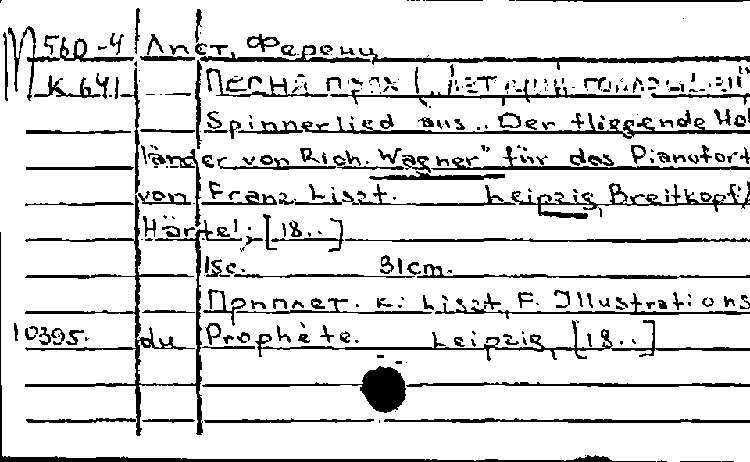 М 560-4 Лист, Ференц
К 641 Песня прях ("Летучий голландец")
Spinnerlied aus „Der fliegende Hol
länder von Rich. Wagner" für das Pianofort
von Franz Liszt. Leipzig, Breitkopf/
Härtel; [18..]
1sc. 31cm.
Приплет. к: Liszt, F. Illustrations
10395. du Prophète. Leipzig, [18..]